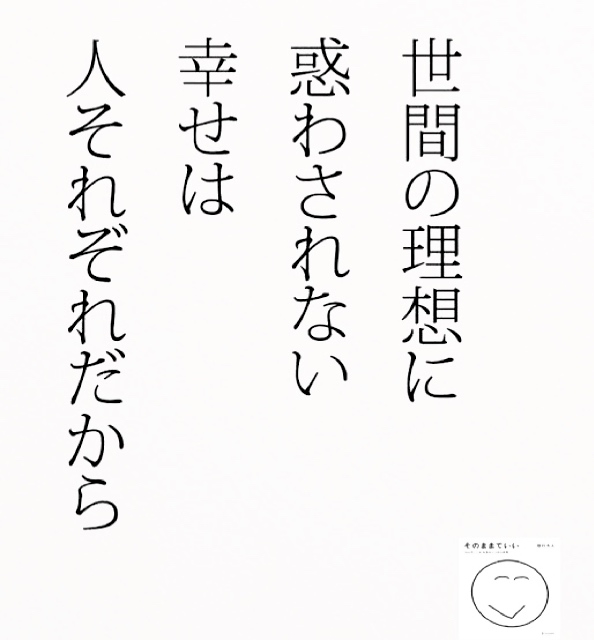 世間の理想に
惑わされない
幸せは
人それぞれだから
そのままでいい